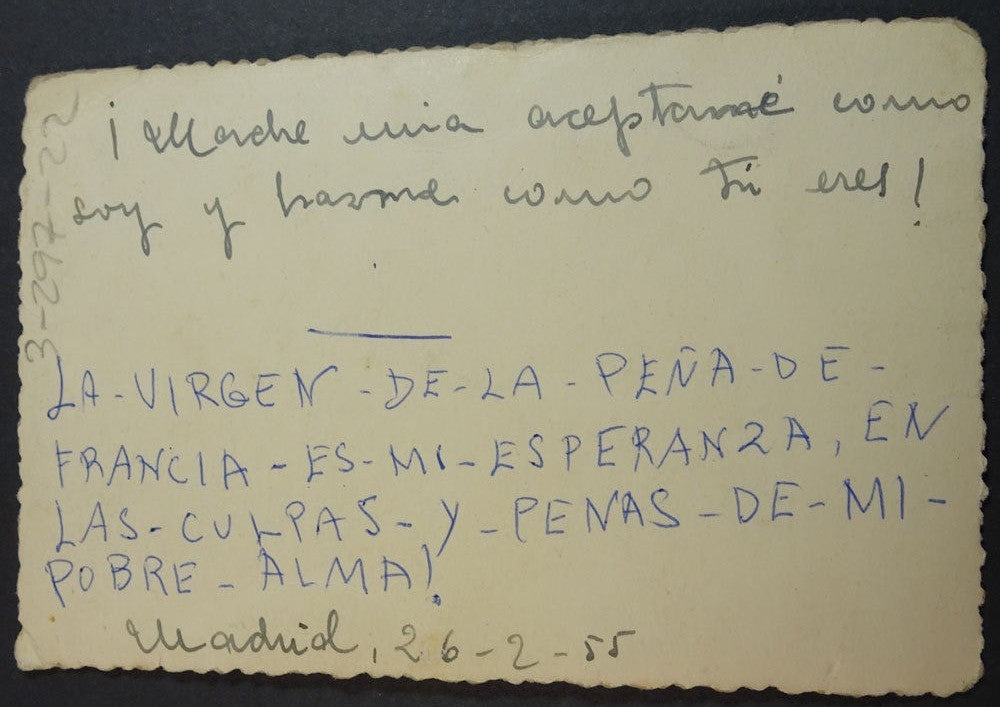 ¡Madre mia aceptamé como
soy y hazme como tú eres!
LA-VIRGEN-DE-LA-PEÑA-DE-
FRANCIA-ES-MI-ESPERANZA, EN
LAS-CULPAS-Y-PENAS-DE-MI-
POBRE-ALMA!
Madrid, 26-2-55
3-297-22